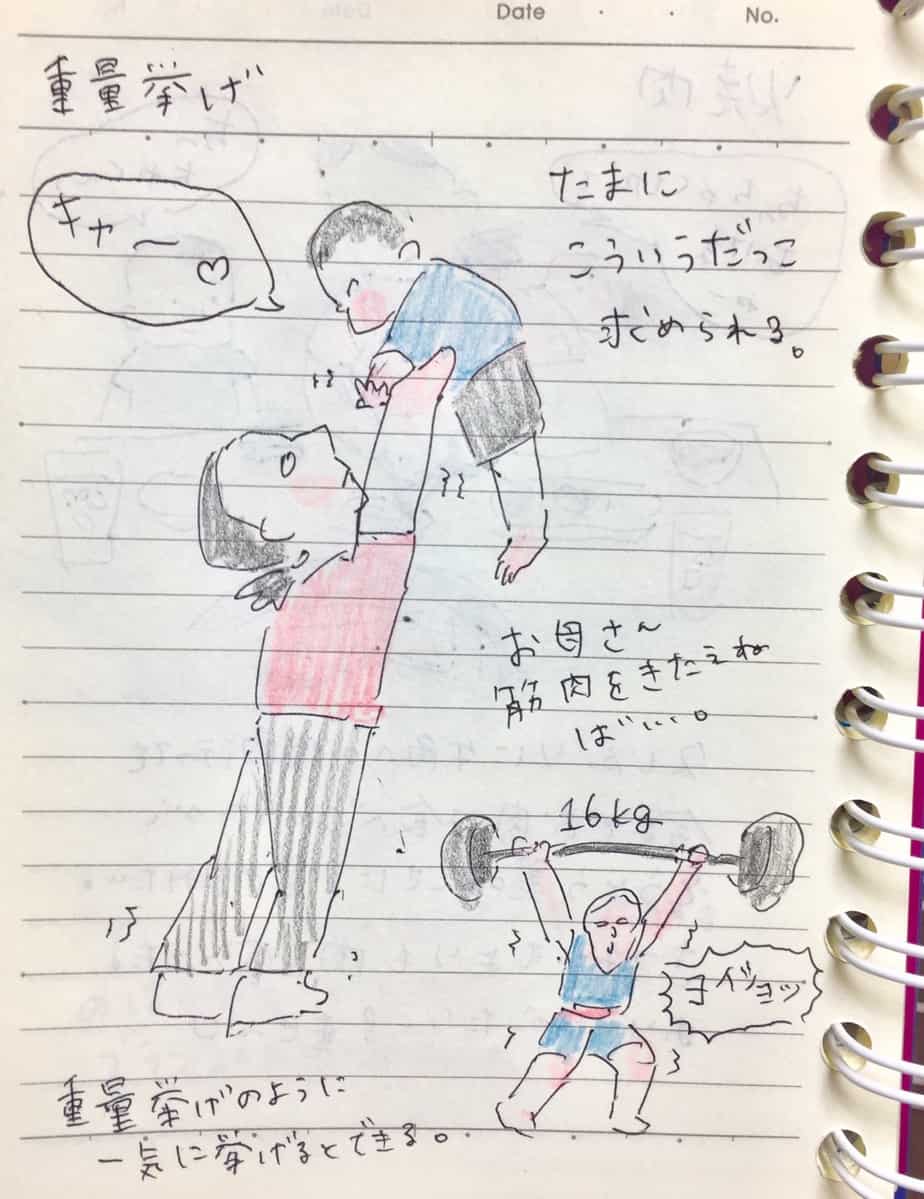 Date
No.
重量挙げ
たまに
こういうだっこ
求められる。
キャー♡
お母さん
筋肉をきたえね
ば…。
16kg
ヨイショッ
重量挙げのように
一気に挙げるとできる。